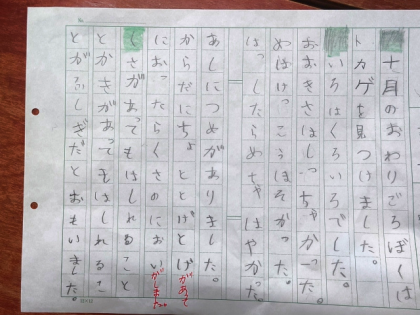 十月のおわりごろぼくは
トカゲを見つけました。
いろはくろいろでした。
おおきさはちっちゃかった。
めはけっこうほそかった。
はっしたらめちゃはやかった。
あしにつめがありました。
からだにちょととげとげがあて
におったらくさのにおいがしました
くさがあってもはしれること
とかさがあってもはしれるこ
とがふしぎだとおもいました。